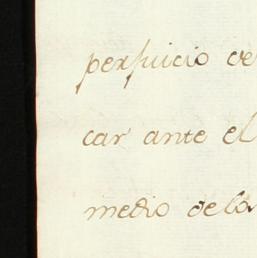 perjuicio de
car ante el
medio de la